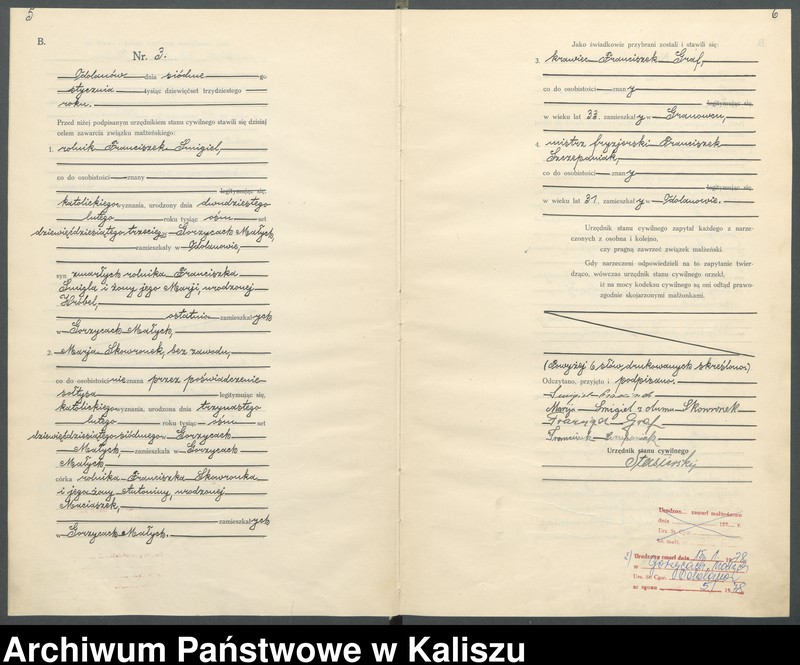 5
B.
Nr. 3.
Odolanów dnia siódme go
stycznia tysiąc dziewięćset trzydziestego
roku.
Przed niżej podpisanym urzędnikiem stanu cywilnego stawili się dzisiaj
celem zawarcia związku małżeńskiego:
1. rolnik Franciszek Śmigiel,
co do osobistości znany
legitymując się,
katolickiego wyznania, urodzony dnia dwudziestego
lutego roku tysiąc ośm set
dziewięćdziesiątego trzeciego w Gorzycach Małych,
zamieszkały w Odolanowie,
syn zmarłych rolnika Franciszka
Śmigla i żony jego Marji, urodzonej
Hróbel,
ostatnio zamieszkałych
w Gorzycach Małych,
2. Marja Skowronek, bez zawodu,
co do osobistości nie znana przez poświadczenie
sołtysa legitymując się,
katolickiego wyznania, urodzona dnia trzynastego
lutego roku tysiąc ośm set
dziewięćdziesiątego siódmego w Gorzycach
Małych, zamieszkała w Gorzycach
Małych,
córka rolnika Franciszka Skowronka
i jego żony Antoniny, urodzonej
Maciaszek,
zamieszkałych
w Gorzycach Małych.
6
Jako świadkowie przybrani zostali i stawili się:
3. krawiec Franciszek Graf,
co do osobistości znany
legitymując się,
w wieku lat 33, zamieszkały w Granowcu,
4. mistrz fryzjerski Franciszek
Szczepaniak,
co do osobistości znany
legitymując się,
w wieku lat 31, zamieszkały w Odolanowie.
Urzędnik stanu cywilnego zapytał każdego z narze-
czonych z osobna i kolejno,
czy pragną zawrzeć związek małżeński.
Gdy narzeczeni odpowiedzieli na to zapytanie twier-
dząco, wówczas urzędnik stanu cywilnego orzekł,
iż na mocy kodeksu cywilnego są oni odtąd prawo-
zgodnie skojarzonymi małżonkami.
(Powyżej 6 słów drukowanych skreślono.)
Odczytano, przyjęto i podpisano.
Śmigiel
Marja Śmigiel z domu Skowronek
Graf
Urzędnik stanu cywilnego
zmarł
dnia
2) zmarł dnia 15. 1. 1978
w Gorzycach Małych
Urz. St. Cyw. Odolanów
nr zgonu 5/ 1978
Archiwum Państwowe w Kaliszu